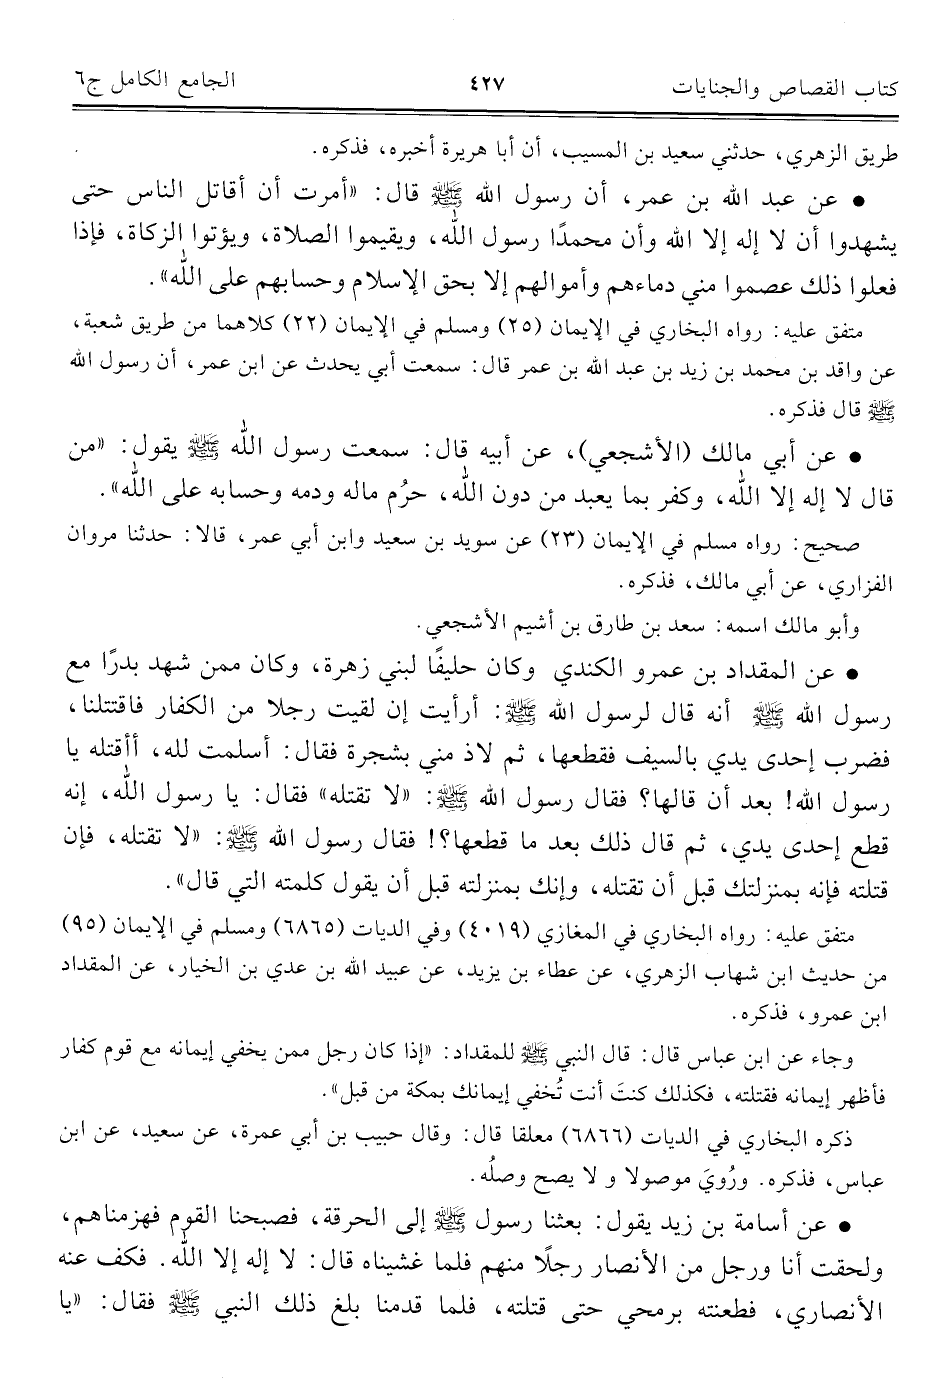 كتاب القصاص والجنايات ٤٢٧ الجامع الكامل ج٦
طريق الزهري، حدثني سعيد بن المسيب، أن أبا هريرة أخبره، فذكره.
• عن عبد الله بن عمر، أن رسول الله ﷺ قال: «أمرت أن أقاتل الناس حتى
يشهدوا أن لا إله إلا الله وأن محمدًا رسول الله، ويقيموا الصلاة، ويؤتوا الزكاة، فإذا
فعلوا ذلك عصموا مني دماءهم وأموالهم إلا بحق الإسلام وحسابهم على الله».
متفق عليه: رواه البخاري في الإيمان (٢٥) ومسلم في الإيمان (٢٢) كلاهما من طريق شعبة،
عن واقد بن محمد بن زيد بن عبد الله بن عمر قال: سمعت أبي يحدث عن ابن عمر، أن رسول الله
ﷺ قال فذكره.
• عن أبي مالك (الأشجعي)، عن أبيه قال: سمعت رسول الله ﷺ يقول: «من
قال لا إله إلا الله، وكفر بما يعبد من دون الله، حرُم ماله ودمه وحسابه على الله».
صحيح: رواه مسلم في الإيمان (٢٣) عن سويد بن سعيد وابن أبي عمر، قالا: حدثنا مروان
الفزاري، عن أبي مالك، فذكره.
وأبو مالك اسمه: سعد بن طارق بن أشيم الأشجعي.
• عن المقداد بن عمرو الكندي وكان حليفًا لبني زهرة، وكان ممن شهد بدرًا مع
رسول الله ﷺ أنه قال لرسول الله ﷺ: أرأيت إن لقيت رجلا من الكفار فاقتتلنا،
فضرب إحدى يدي بالسيف فقطعها، ثم لاذ مني بشجرة فقال: أسلمت لله، أأقتله يا
رسول الله! بعد أن قالها؟ فقال رسول الله ﷺ: «لا تقتله» فقال: يا رسول الله، إنه
قطع إحدى يدي، ثم قال ذلك بعد ما قطعها؟! فقال رسول الله ﷺ: «لا تقتله، فإن
قتلته فإنه بمنزلتك قبل أن تقتله، وإنك بمنزلته قبل أن يقول كلمته التي قال».
متفق عليه: رواه البخاري في المغازي (٤٠١٩) وفي الديات (٦٨٦٥) ومسلم في الإيمان (٩٥)
من حديث ابن شهاب الزهري، عن عطاء بن يزيد، عن عبيد الله بن عدي بن الخيار، عن المقداد
ابن عمرو، فذكره.
وجاء عن ابن عباس قال: قال النبي ﷺ للمقداد: «إذا كان رجل ممن يخفي إيمانه مع قوم كفار
فأظهر إيمانه فقتلته، فكذلك كنتَ أنت تُخفي إيمانك بمكة من قبل».
ذكره البخاري في الديات (٦٨٦٦) معلقا قال: وقال حبيب بن أبي عمرة، عن سعيد، عن ابن
عباس، فذكره. ورُويَ موصولا و لا يصح وصلُه.
• عن أسامة بن زيد يقول: بعثنا رسول ﷺ إلى الحرقة، فصبحنا القوم فهزمناهم،
ولحقت أنا ورجل من الأنصار رجلًا منهم فلما غشيناه قال: لا إله إلا الله. فكف عنه
الأنصاري، فطعنته برمحي حتى قتلته، فلما قدمنا بلغ ذلك النبي ﷺ فقال: «يا